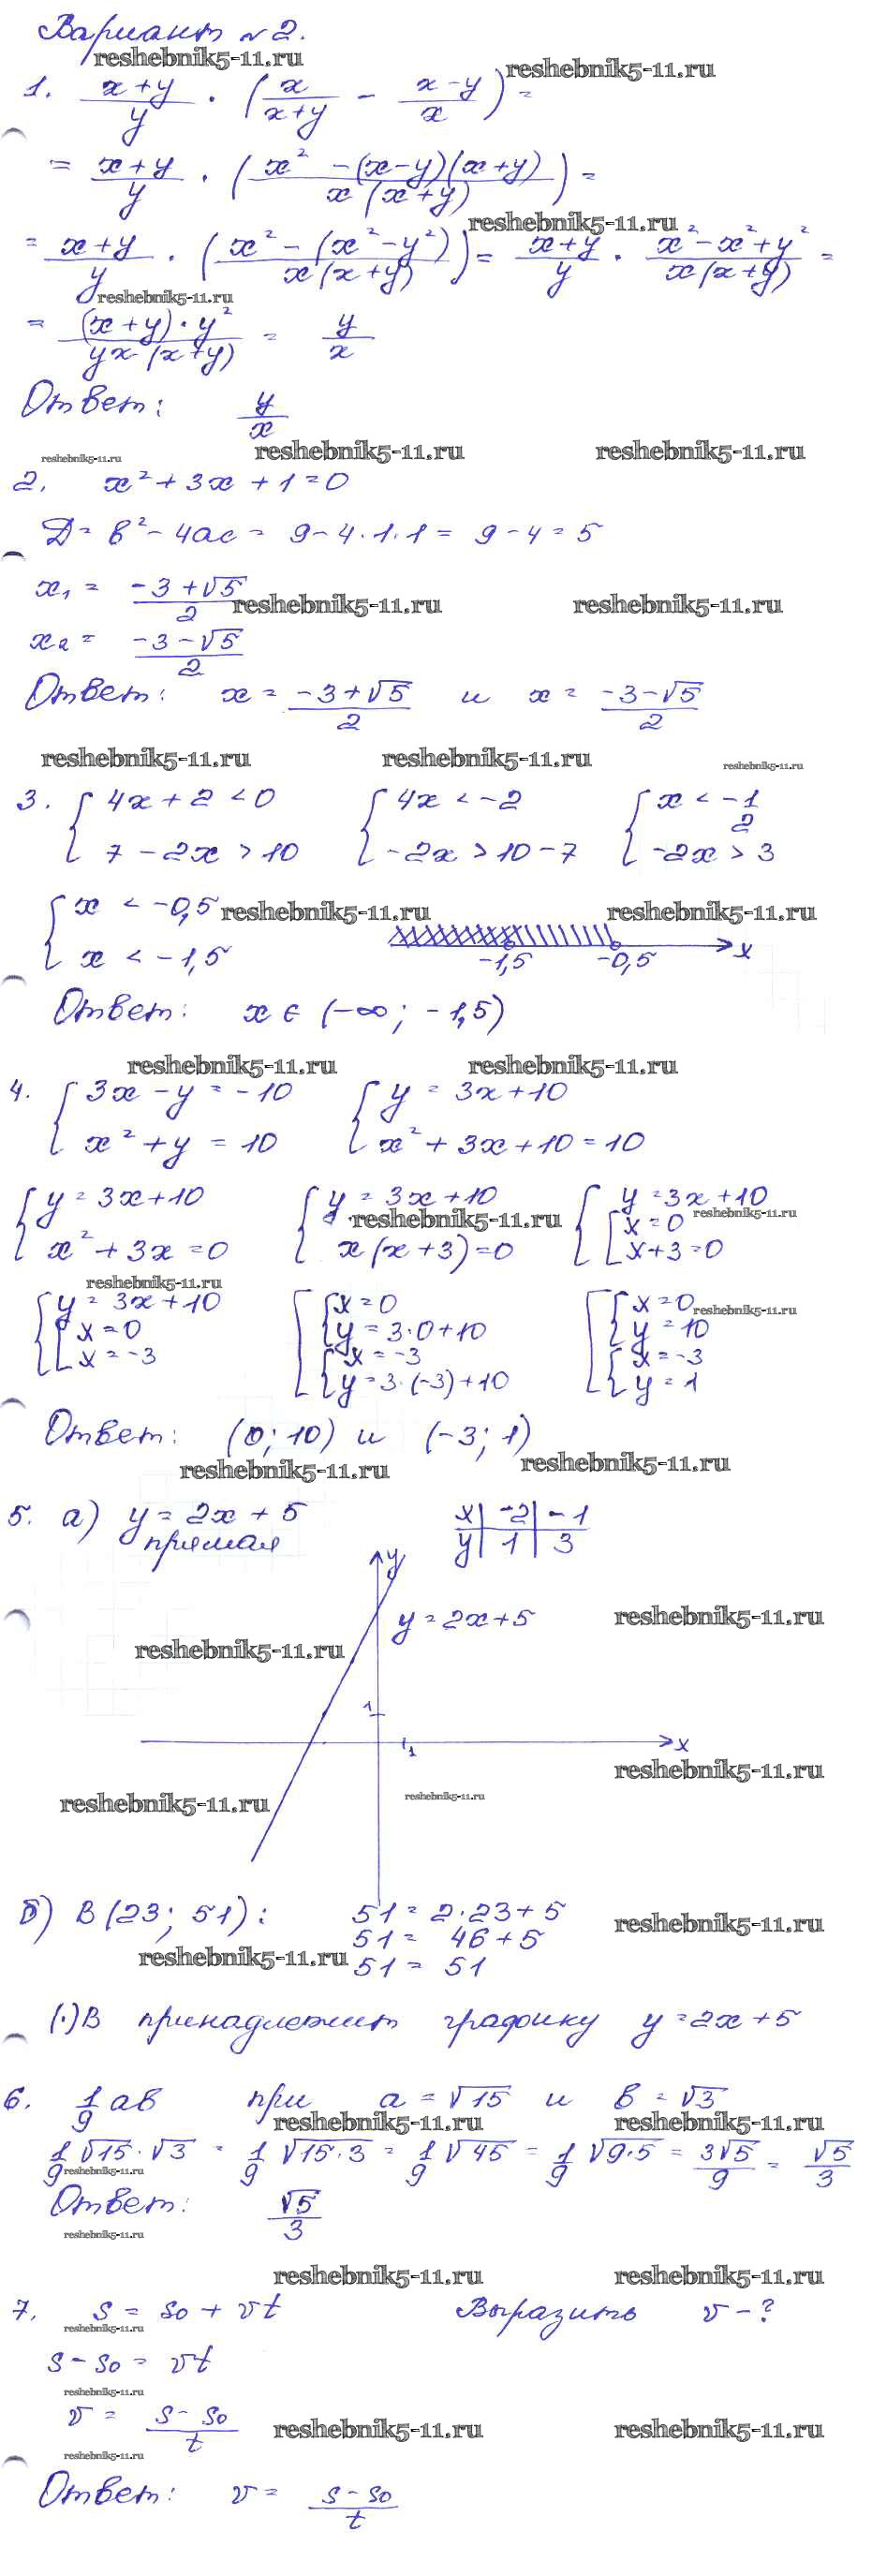 Вариант №2.
reshebnik5-11.ru
reshebnik5-11.ru
1. (x+y)/y · (x/(x+y) - (x-y)/x) =
= (x+y)/y · ((x² - (x-y)(x+y))/(x(x+y))) =
reshebnik5-11.ru
= (x+y)/y · ((x² - (x² - y²))/(x(x+y))) = (x+y)/y · (x² - x² + y²)/(x(x+y)) =
reshebnik5-11.ru
= ((x+y)·y²)/(yx·(x+y)) = y/x
Ответ: y/x
reshebnik5-11.ru reshebnik5-11.ru reshebnik5-11.ru
2. x² + 3x + 1 = 0
D = b² - 4ac = 9 - 4·1·1 = 9 - 4 = 5
x₁ = (-3+√5)/2
reshebnik5-11.ru reshebnik5-11.ru
x₂ = (-3-√5)/2
Ответ: x = (-3+√5)/2 и x = (-3-√5)/2
reshebnik5-11.ru reshebnik5-11.ru reshebnik5-11.ru
3. { 4x + 2 < 0 { 4x < -2 { x < -1/2
7 - 2x > 10 -2x > 10 - 7 -2x > 3
{ x < -0,5 reshebnik5-11.ru reshebnik5-11.ru
x < -1,5 -1,5 -0,5 x
Ответ: x ∈ (-∞; -1,5)
reshebnik5-11.ru reshebnik5-11.ru
4. { 3x - y = -10 { y = 3x + 10
x² + y = 10 x² + 3x + 10 = 10
{ y = 3x + 10 { y = 3x + 10 { y = 3x + 10
reshebnik5-11.ru reshebnik5-11.ru
x² + 3x = 0 x(x + 3) = 0 [ x = 0
x + 3 = 0
reshebnik5-11.ru
{ y = 3x + 10 [ { x = 0 [ { x = 0 reshebnik5-11.ru
[ x = 0 y = 3·0 + 10 y = 10
x = -3 { x = -3 { x = -3
y = 3·(-3) + 10 y = 1
Ответ: (0; 10) и (-3; 1)
reshebnik5-11.ru reshebnik5-11.ru
5. а) y = 2x + 5 x | -2 | -1
прямая y | 1 | 3
y
y = 2x + 5 reshebnik5-11.ru
reshebnik5-11.ru
1
1 x
reshebnik5-11.ru
reshebnik5-11.ru reshebnik5-11.ru
б) B(23; 51): 51 = 2·23 + 5
reshebnik5-11.ru
51 = 46 + 5
reshebnik5-11.ru 51 = 51
(·)B принадлежит графику y = 2x + 5
6. 1/9 ab при a = √15 и b = √3
reshebnik5-11.ru reshebnik5-11.ru
1/9 √15·√3 = 1/9 √(15·3) = 1/9 √45 = 1/9 √(9·5) = 3√5/9 = √5/3
reshebnik5-11.ru
Ответ: √5/3
reshebnik5-11.ru
reshebnik5-11.ru reshebnik5-11.ru
7. s = s₀ + vt Выразить v - ?
reshebnik5-11.ru
s - s₀ = vt
reshebnik5-11.ru
v = (s - s₀)/t
reshebnik5-11.ru reshebnik5-11.ru
reshebnik5-11.ru
Ответ: v = (s - s₀)/t